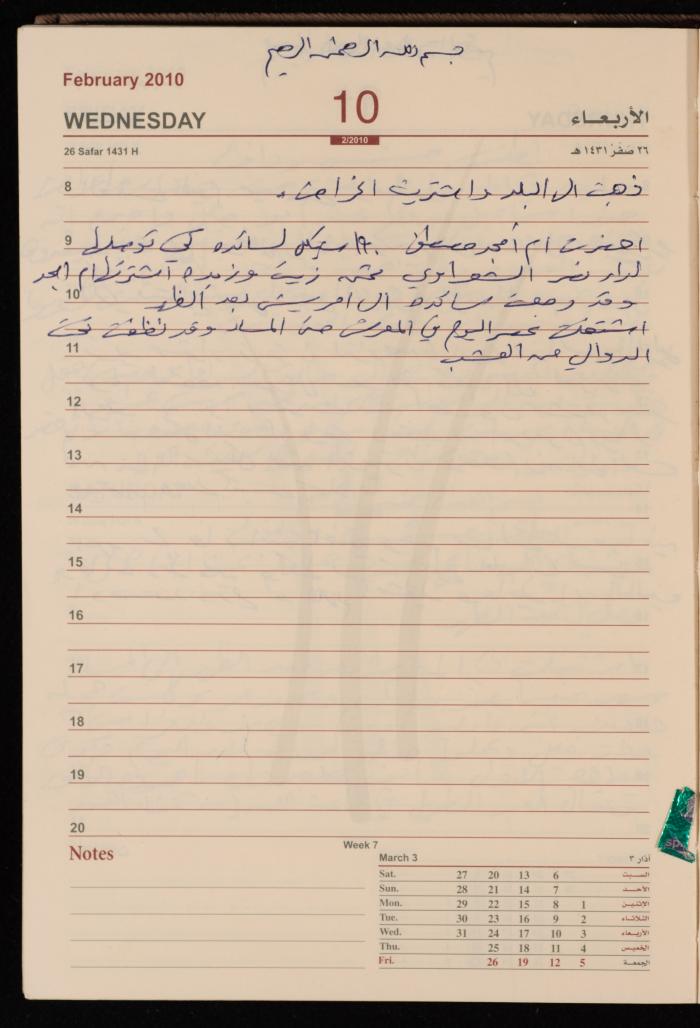 بسم الله الرحمن الرحيم
February 2010
WEDNESDAY
10
2/2010
الأربعـاء
26 Safar 1431 H
٢٦ صَفَرْ ١٤٣١ هـ
8
ذهبت الى البلد واشتريت اغراض.
9
احضرت ام أمجد مصطفى لسائده كي توصلها
لدار نصر الشعراوي زيت وزبده اشترتها ام امجد
10
وقد رجعت سائده الى بعد الظهر
اشتغلت عصر اليوم في حتى المساء وقد نظفت تحت
11
الدوالي من العشب
12
13
14
15
16
17
18
19
20
Notes
Week 7
March 3
آذار ٣
Sat. 27 20 13 6 السـبت
Sun. 28 21 14 7 الأحـد
Mon. 29 22 15 8 1 الاثنـين
Tue. 30 23 16 9 2 الثلاثـاء
Wed. 31 24 17 10 3 الأربعـاء
Thu. 25 18 11 4 الخميس
Fri. 26 19 12 5 الجمعـة